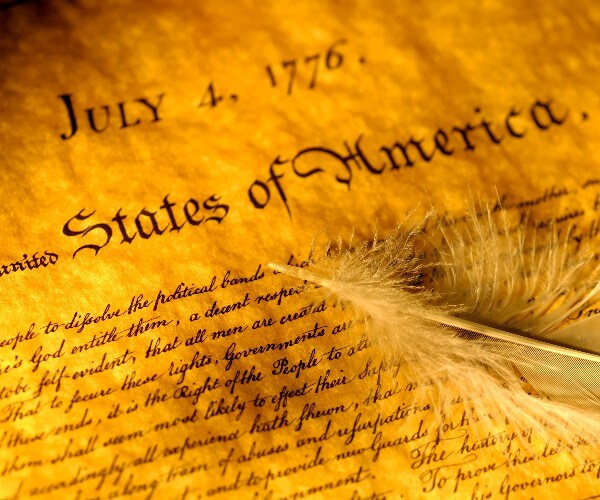 JULY 4, 1776.
united States of America,
eople to dissolve the political bands which
e's God entitle them, a decent respec
tobe self-evident, that all men are created
That to secure these rights, Governments ar
these ends, it is the Right of the People to alt
them shall seem most likely to effect their Safe
accordingly all experience hath shewn, that
a long train of abuses and usurpations
, and to provide new Guards for
ernment. The history of
To prove this let
his Governors to